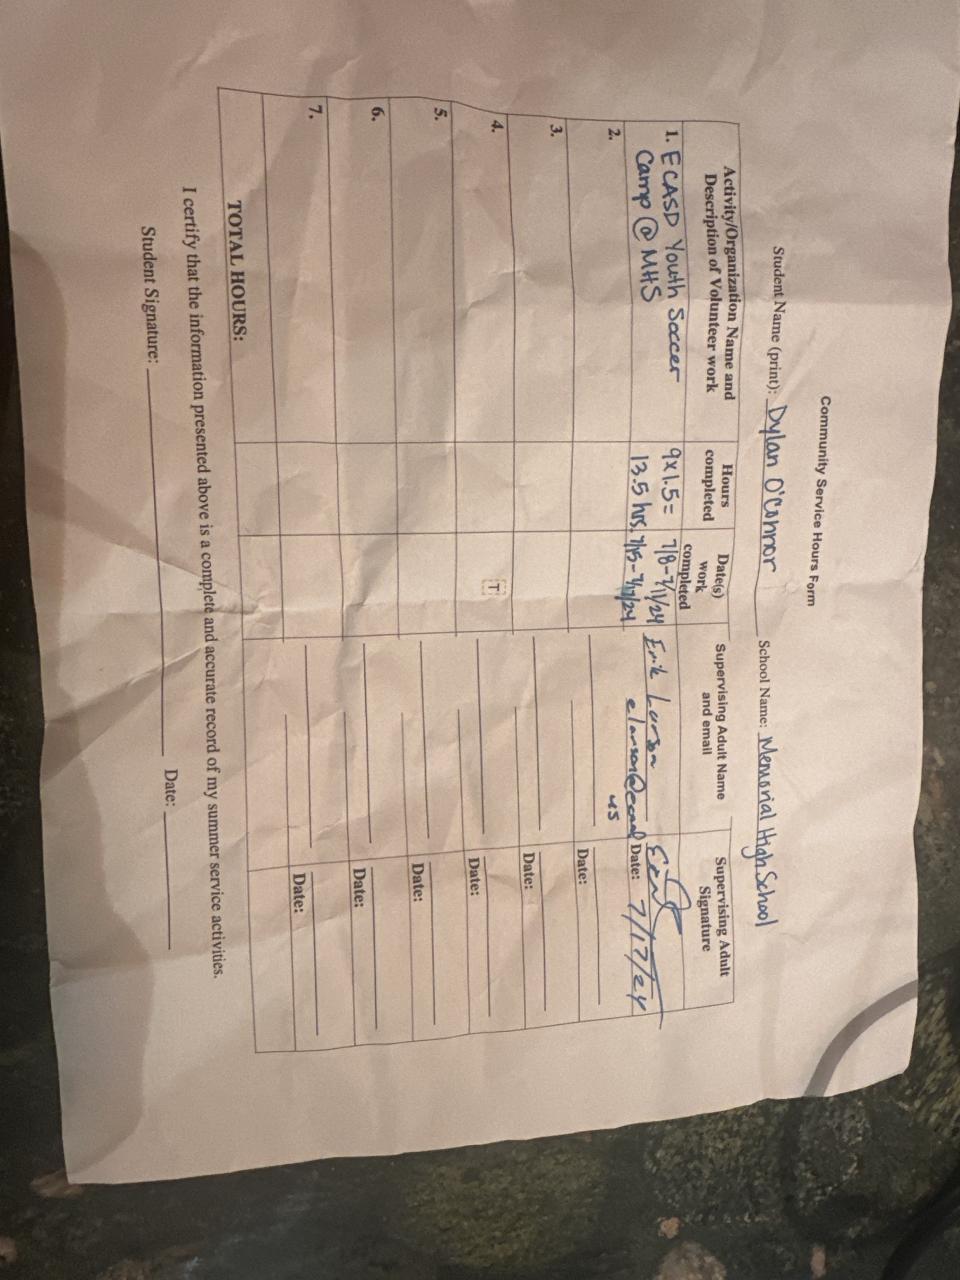 Community Service Hours Form
Student Name (print): Dylan O'Connor School Name: Memorial High School
Activity/Organization Name and
Description of Volunteer work
Hours
completed
Date(s)
work
completed
Supervising Adult Name
and email
Supervising Adult
Signature
1. ECASD Youth Soccer
Camp @ MHS
9x1.5=
13.5 hrs.
7/8-7/11/24
7/15-7/17/24
Erik Larson
us
Date: 7/17/24
2.
Date:
3.
Date:
4.
T
Date:
5.
Date:
6.
Date:
7.
Date:
TOTAL HOURS:
I certify that the information presented above is a complete and accurate record of my summer service activities.
Student Signature: Date: